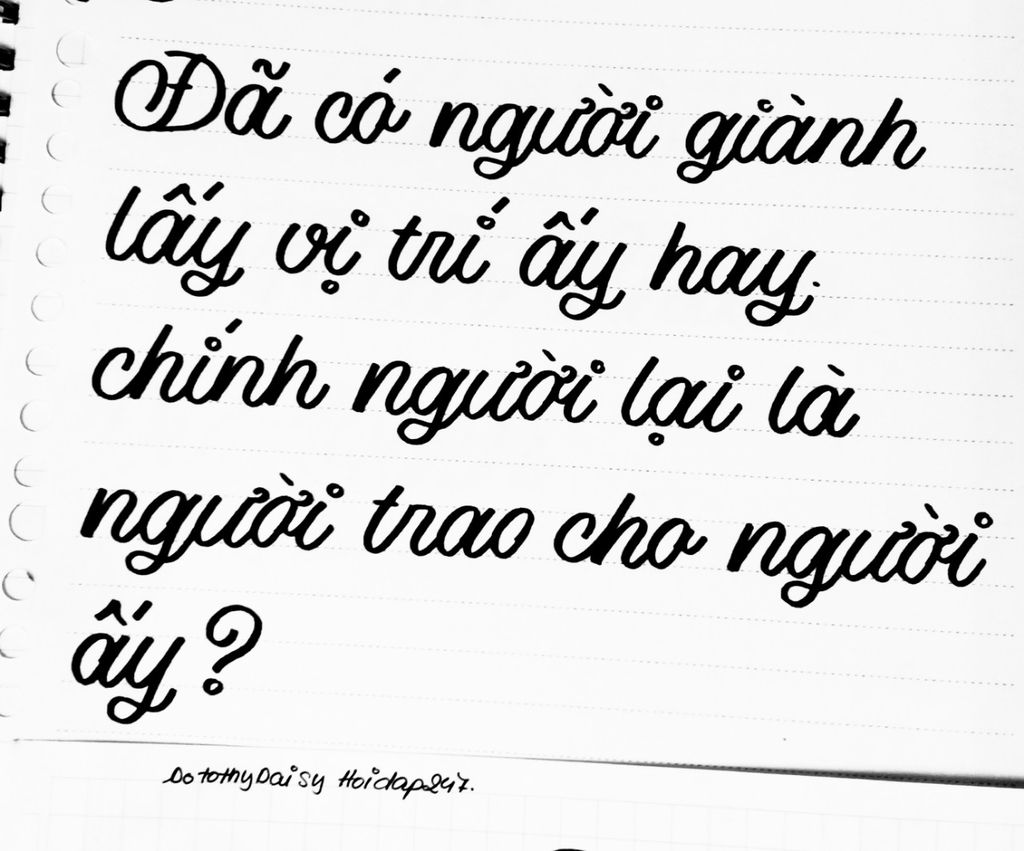 Đã có người giành
lấy vị trí ấy hay
chính người lại là
người trao cho người
ấy?
DotothyDaisy Hoidap247.